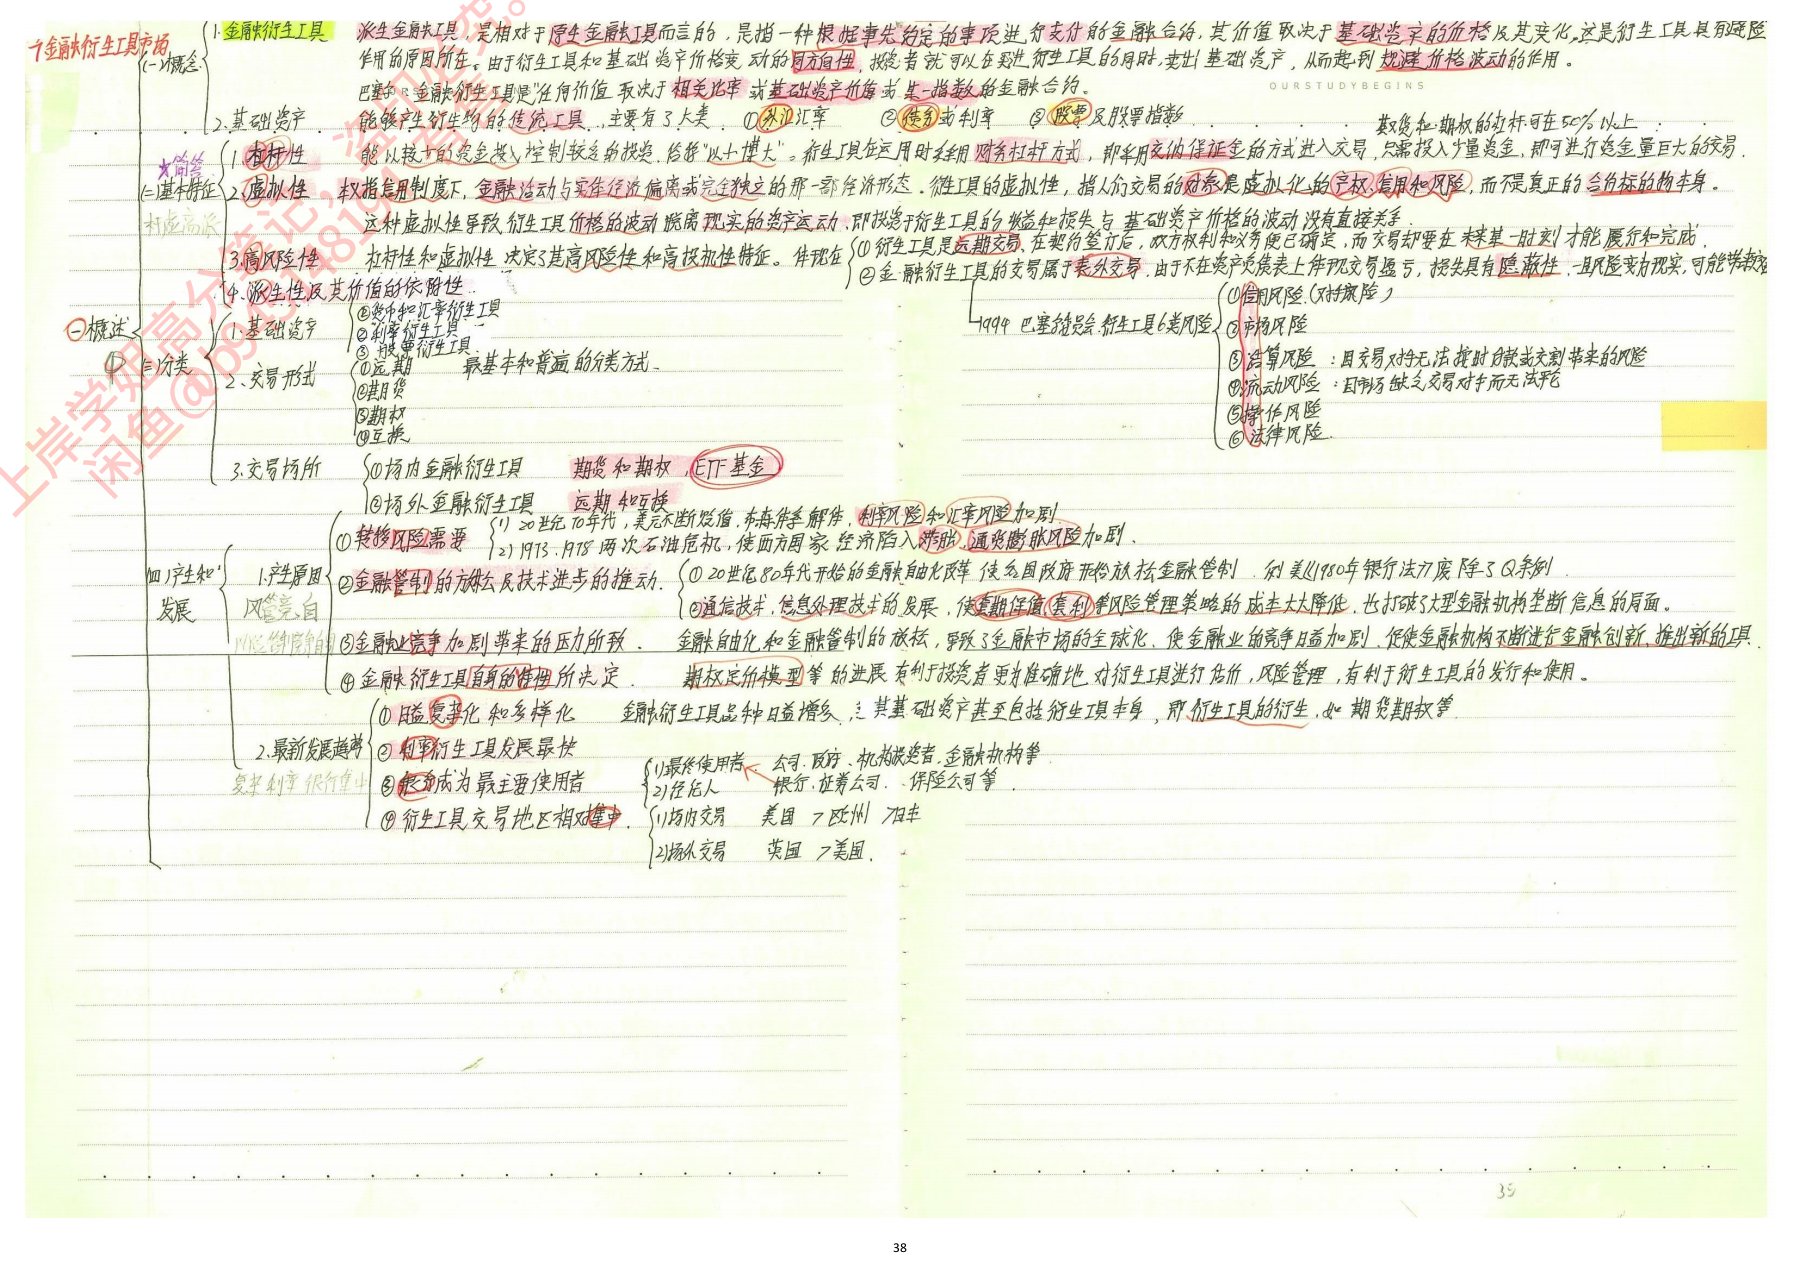 十金融衍生工具市场
(一)概念
1.金融衍生工具 派生金融工具,是相对于原生金融工具而言的,是指一种根据事先约定的事项进行支付的金融合约,其价值取决于基础资产的价格及其变化。这是衍生工具具有避险
作用的原因所在。由于衍生工具和基础资产价格变动的同方向性,投资者就可以在买进衍生工具的同时,卖出基础资产,从而起到规避价格波动的作用。
金融衍生工具是"任何价值取决于相关比率或基础资产价值或某一指数的金融合约。
OURSTUDYBEGINS
2.基础资产 能够产生衍生物的传统工具,主要有3大类 ①外汇汇率 ②债务或利率 ③股票及股票指数
期货和期权的杠杆可在50%以上
★简答
(二)基本特征
杠虚高派
1.杠杆性 能以较少的资金投入控制较多的投资,俗称"以小博大"。衍生工具在运用时多采用财务杠杆方式,即采用交纳保证金的方式进入交易,只需投入少量资金,即可进行资金量巨大的交易.
2.虚拟性 指信用制度下,金融活动与实体经济偏离或完全独立的那一部份经济形态。衍生工具的虚拟性,指人们交易的对象是虚拟化的产权、信用和风险,而不是真正的合约标的物本身。
这种虚拟性导致衍生工具价格的波动脱离现实的资产运动,即投资于衍生工具的收益和损失与基础资产价格的波动没有直接关系.
3.高风险性 杠杆性和虚拟性决定了其高风险性和高投机性特征。体现在
①衍生工具是远期交易,在契约签订后,双方权利和义务便已确定,而交易却要在未来某一时刻才能履行和完成.
②金融衍生工具的交易属于表外交易,由于不在资产负债表上体现交易盈亏,损失具有隐蔽性,一旦风险变为现实,可能带来
4.派生性及其价值的依附性
1994 巴塞尔委员会.衍生工具6类风险
①信用风险.(对手风险)
②市场风险
③结算风险:因交易对手无法按时付款或交割带来的风险
④流动风险:因市场缺乏交易对手而无法平仓
⑤操作风险
⑥法律风险.
一概述
(三)分类
1.基础资产
①货币和汇率衍生工具
②利率衍生工具
③股票衍生工具
2.交易形式
①远期 最基本和普遍的分类方式.
②期货
③期权
④互换
3.交易场所
①场内金融衍生工具 期货和期权,ETF基金
②场外金融衍生工具 远期和互换
(四)产生和发展
1.产生原因
风管竞自
①转移风险需要
1) 20世纪70年代,美元不断贬值,布森体系解体,利率风险和汇率风险加剧.
2) 1973、1978两次石油危机,使西方国家经济陷入滞胀,通货膨胀风险加剧.
②金融管制的放松及技术进步的推动.
①20世纪80年代开始的金融自由化改革使各国政府开始放松金融管制.例美《1980年银行法》废除了Q条例.
②通信技术,信息处理技术的发展,使套期保值、套利等风险管理策略的成本大大降低,也打破了大型金融机构垄断信息的局面。
③金融业竞争加剧带来的压力所致. 金融自由化和金融管制的放松,导致了金融市场的全球化,使金融业的竞争日益加剧,促使金融机构不断进行金融创新,推出新的工具.
④金融衍生工具自身的特性所决定. 期权定价模型等的进展有利于投资者更为准确地对衍生工具进行估价,风险管理,有利于衍生工具的发行和使用。
2.最新发展趋势
复杂利率银行集中
①日益复杂化和多样化 金融衍生工具品种日益增多,其基础资产甚至包括衍生工具本身,即衍生工具的衍生,如期货期权等.
②利率衍生工具发展最快
③银行成为最主要使用者
1)最终使用者 公司、政府、机构投资者、金融机构等
2)经纪人 银行、证券公司、保险公司等.
④衍生工具交易地区相对集中.
1)场内交易 美国>欧州>日本
2)场外交易 英国>美国.
上岸学姐高分笔记,盗印必究。
35
38